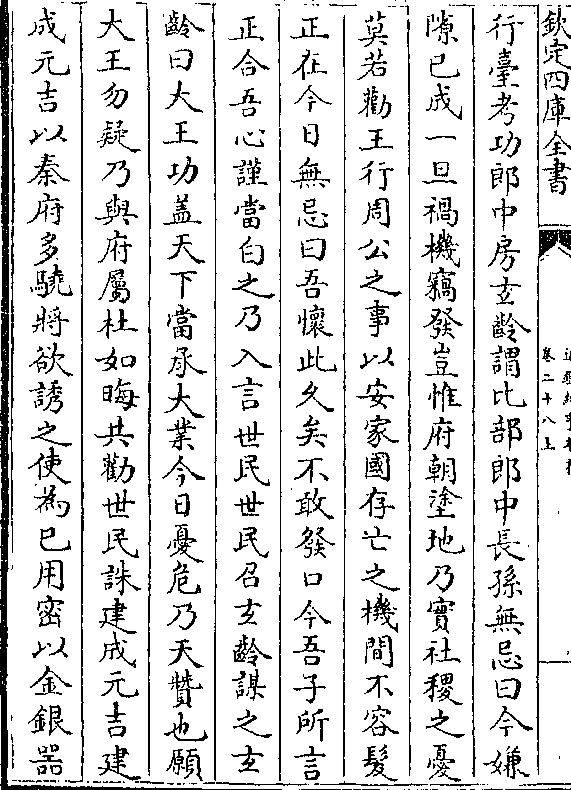 欽定四庫全書
卷二十八上
行臺考功郎中房玄齡謂比部郎中長孫無忌曰今嫌
隙已成一旦禍機竊發豈惟府朝塗地乃實社稷之憂
莫若勸王行周公之事以安家國存亡之機間不容髮
正在今日無忌曰吾懷此久矣不敢發口今吾子所言
正合吾心謹當白之乃入言世民世民召玄齡謀之玄
齡曰大王功盖天下當承大業今日憂危乃天贊也願
大王勿疑乃與府屬杜如晦共勸世民誅建成元吉建
成元吉以秦府多驍將欲誘之使為已用密以金銀器